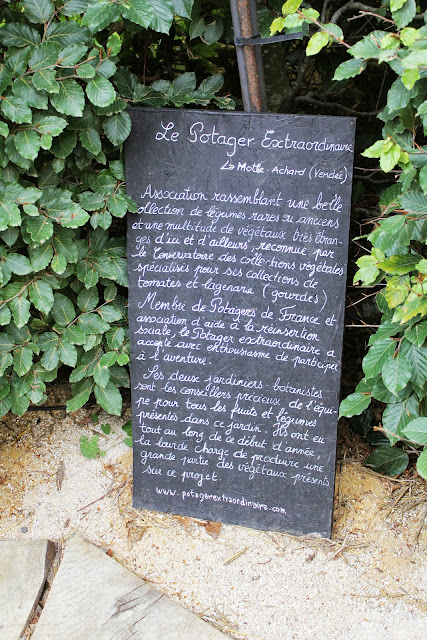 Le Potager Extraordinaire
La Mothe-Achard (Vendée)
Association rassemblant une belle
collection de légumes rares ou anciens
et une multitude de végétaux très étran-
ges d'ici et d'ailleurs, reconnue par
le Conservatoire des collections végétales
spécialisés pour ses collections de
tomates et lagenaire (gourdes)
Membre de Potagers de France et
association d'aide à la réinsertion
sociale, le Potager extraordinaire a
accepté avec enthousiasme de participer
à l'aventure.
Les deux jardiniers-botanistes
sont les conseillers précieux de l'équi-
pe pour tous les fruits et légumes
présentés dans ce jardin. Ils ont eu
tout au long de ce début d'année,
la lourde charge de produire une
grande partie des végétaux présents
sur ce projet.
www.potagerextraordinaire.com